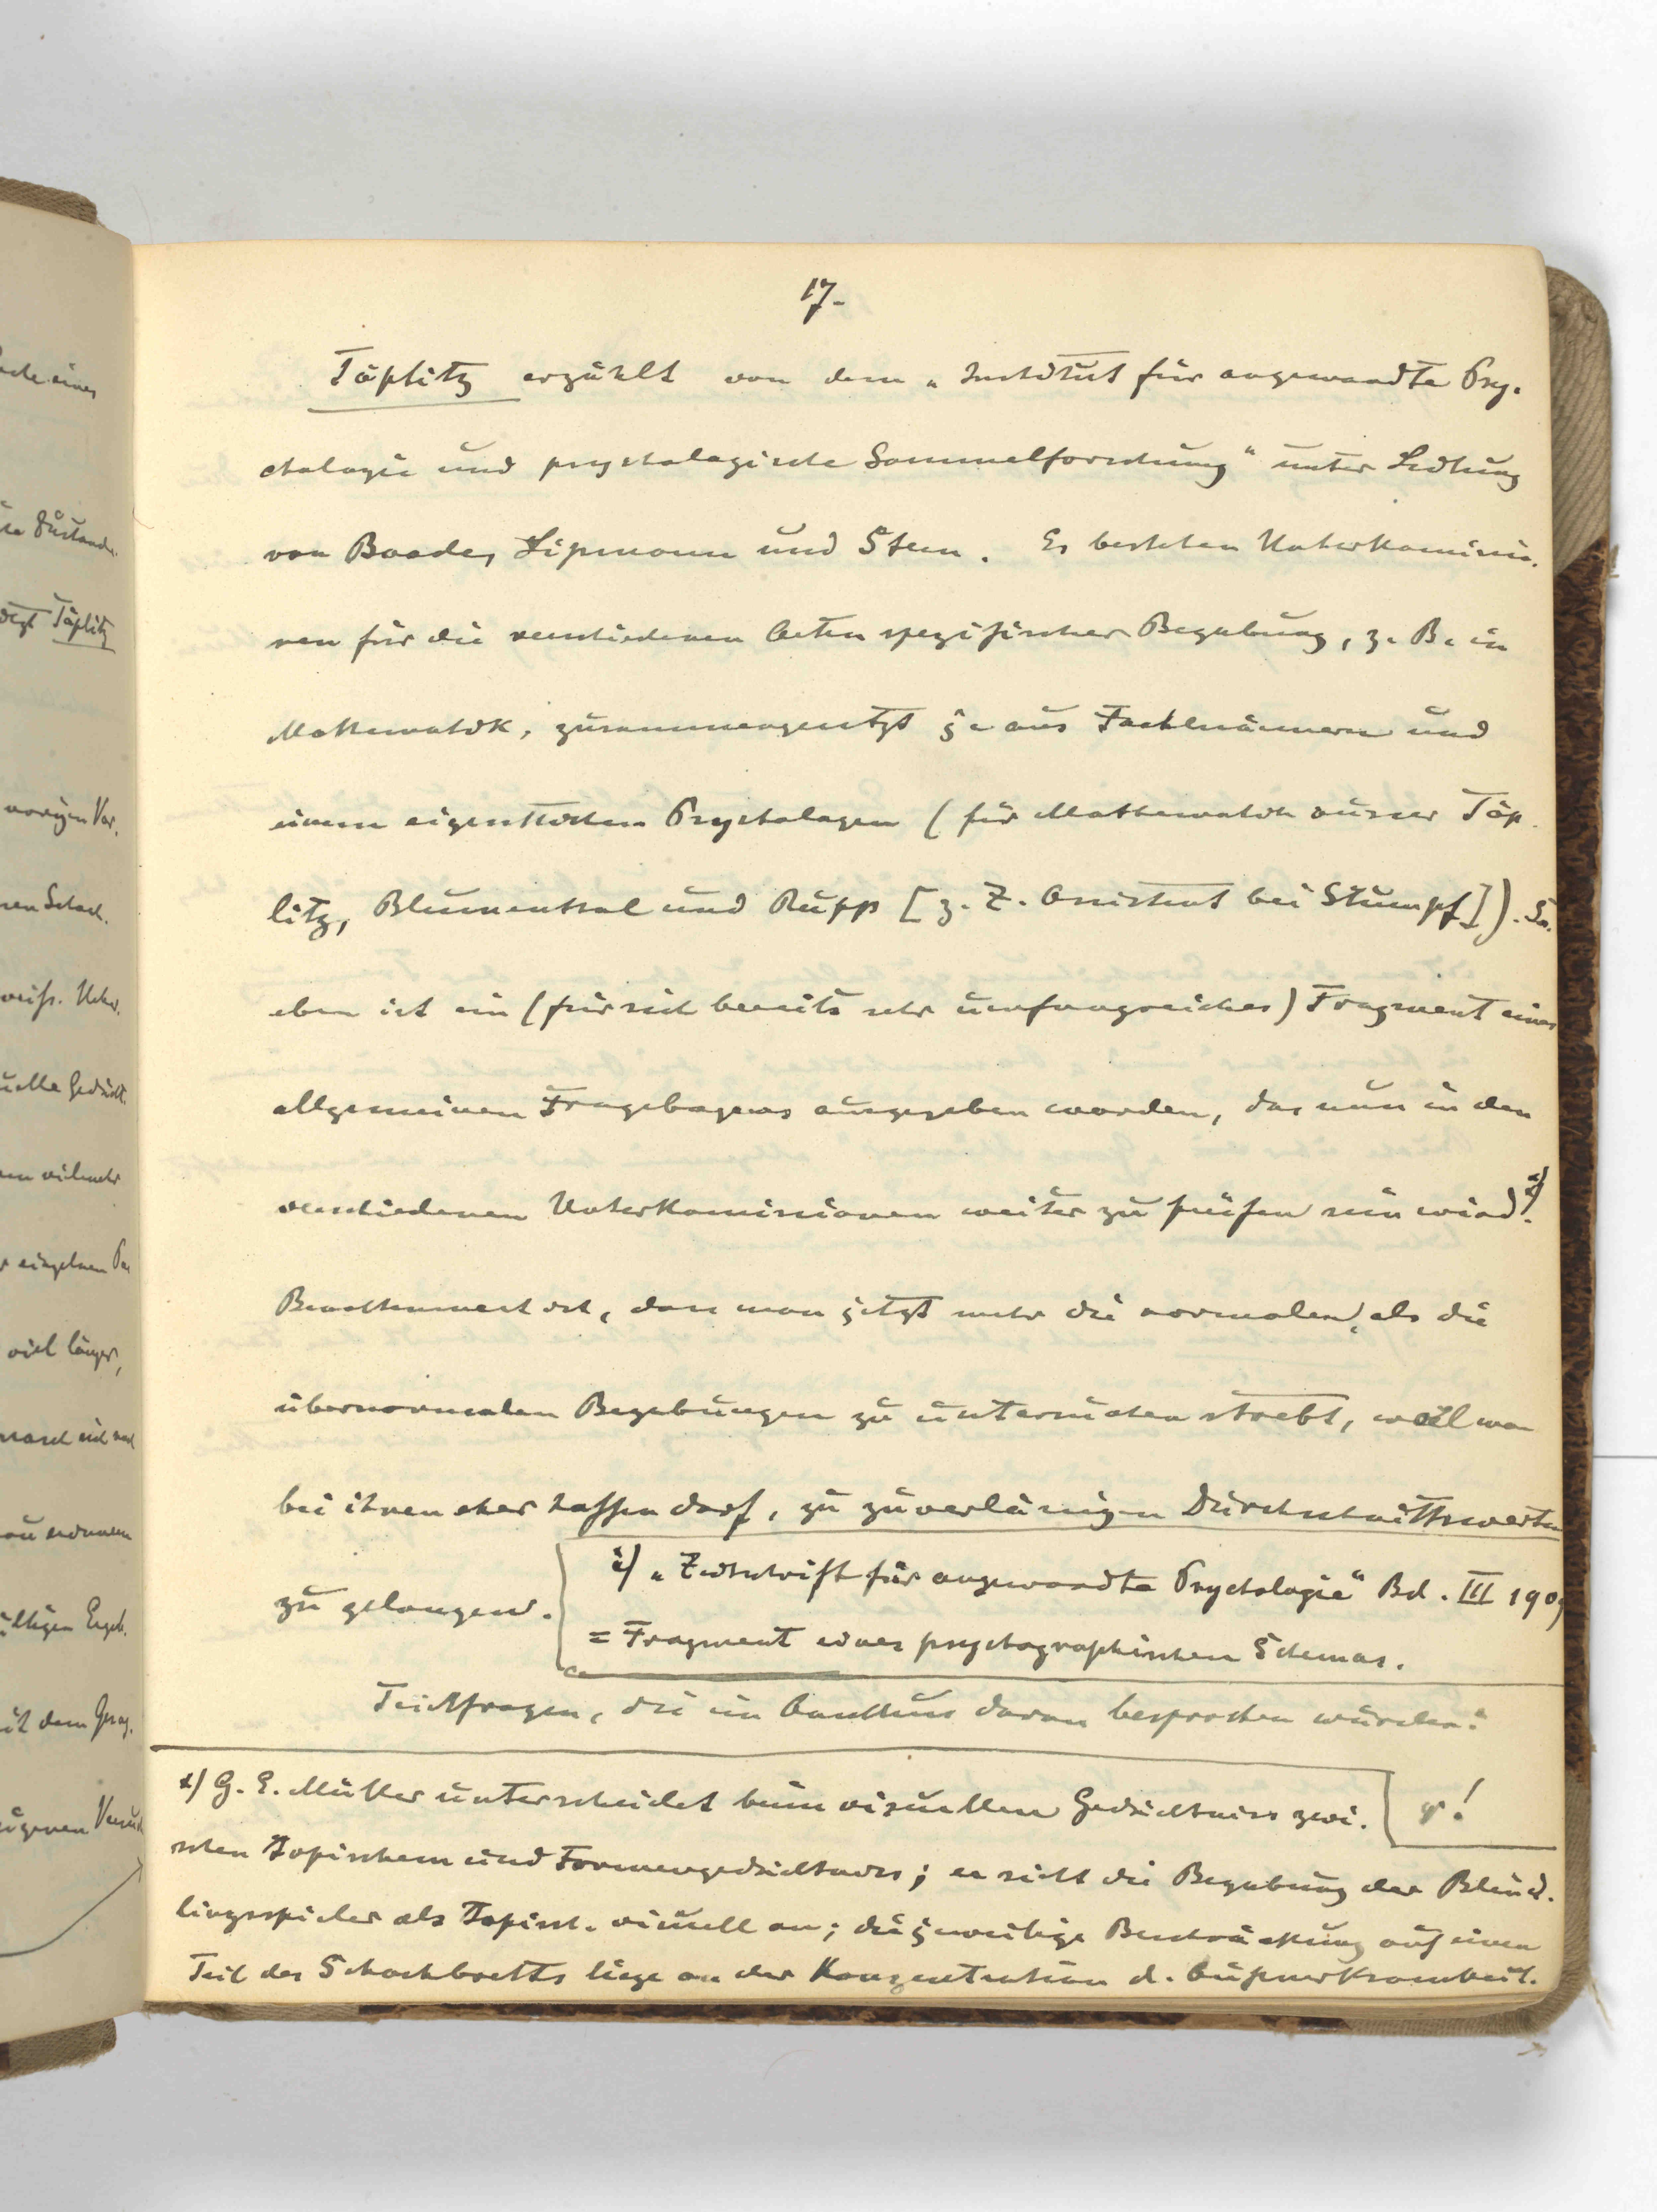 17.
Töplitz erzählt von dem „Institut für angewandte Psy-
chologie und psychologische Sammelforschung" unter Leitung
von Baade, Lipmann und Stern. Es bestehen Unterkommissio-
nen für die verschiedenen Arten spezifischer Begabung, z. B. in
Mathematik, zusammengesetzt je aus Fachmännern und
einem eigentlichen Psychologen (für Mathematik ausser Töp-
litz, Blumenthal und Rupp [z. Z. Assistent bei Stumpf]). So-
eben ist ein (für sich bereits sehr umfangreiches) Fragment eines
allgemeinen Fragebogens ausgegeben worden, das nun in den
verschiedenen Unterkommissionen weiter zu prüfen sein wird.
Bemerkenswert ist, dass man jetzt mehr die normalen, als die
übernormalen Begabungen zu untersuchen strebt, weil man
bei ihnen eher hoffen darf, zu zuverlässigen Durchschnittswerten
zu gelangen.
„Zeitschrift für angewandte Psychologie" Bd. III 1909
= Fragment eines psychographischen Schemas.
Teilfragen, die im Anschluss daran besprochen wurden:
x) G. E. Müller unterscheidet beim visuellen Gedächtniss zwi-
schen topischem und Formengedächtniss; er sieht die Begabung der Blind-
lingsspieler als Topisch-visuell an; die jeweilige Beschränkung auf einen
Teil des Schachbretts liege an der Konzentration d. Aufmerksamkeit.